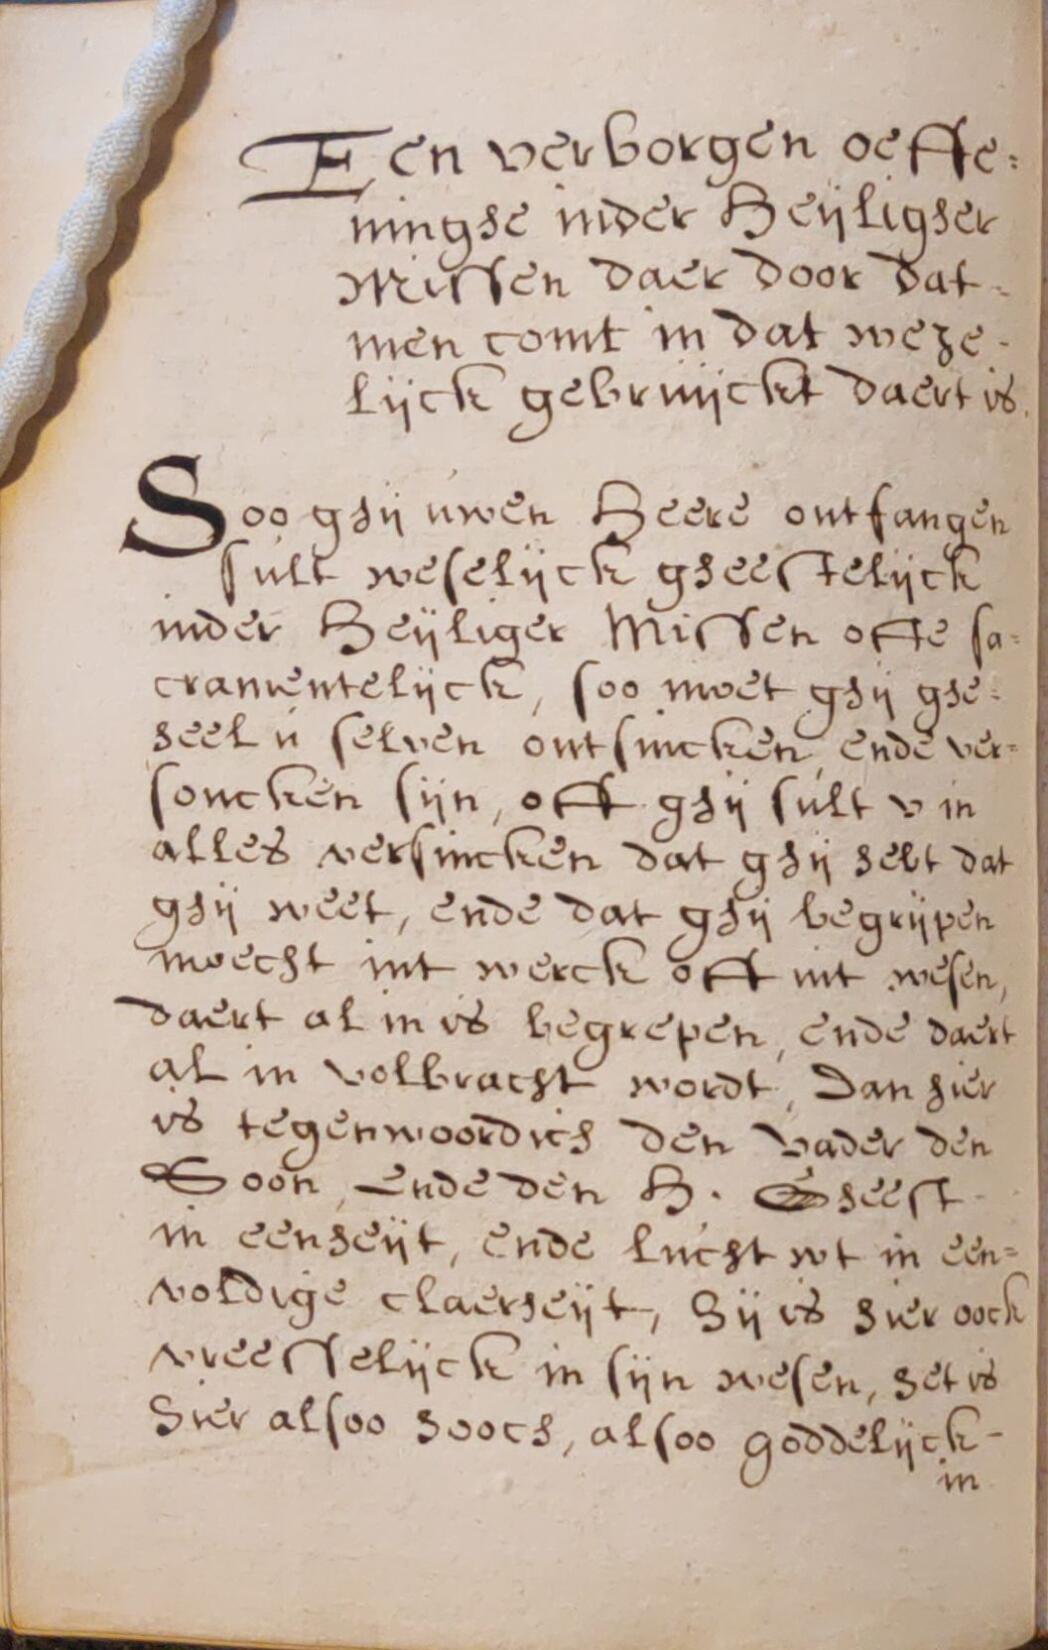 Een verborgen oeffe=
ninghe inder Heijligher
Missen daer door dat
men comt in dat weze-
lijck gebruijckt daert is.
Soo ghij uwen Heere ontfangen
sult weselijck gheestelijck
inder Heijliger Missen offe sa=
cramentelijck, soo moet ghij ghe=
heel u selven ontsincken, ende ver=
soncken sijn, off ghij sult v in
alles versincken dat ghij hebt dat
ghij weet, ende dat ghij begrijpen
moecht int werck off int wesen,
daert al in is begrepen, ende daert
al in volbracht wordt, Dan hier
is tegenwoordich den Vader den
Soon, Ende den H. Gheest
in eenheijt, ende lucht wt in een=
voldige claerheijt, Hij is hier oock
vreesselijck in sijn wesen, het is
hier alsoo hooch, alsoo goddelijck-
in